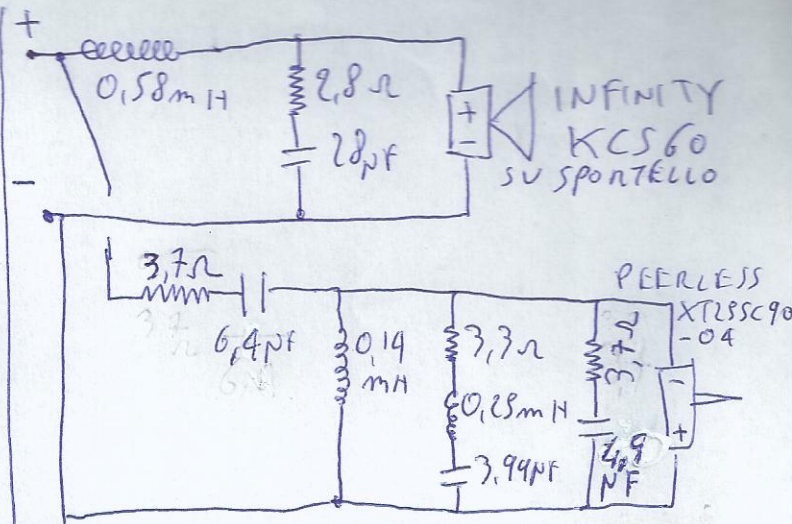 +
0,58mH
2,8Ω
28µF
+
-
INFINITY
KCS60
SU SPORTELLO
-
3,7Ω
6,4µF
0,14
mH
3,3Ω
0,25mH
3,94µF
3,7Ω
4,9
µF
PEERLESS
XT25SC90
-04
-
+